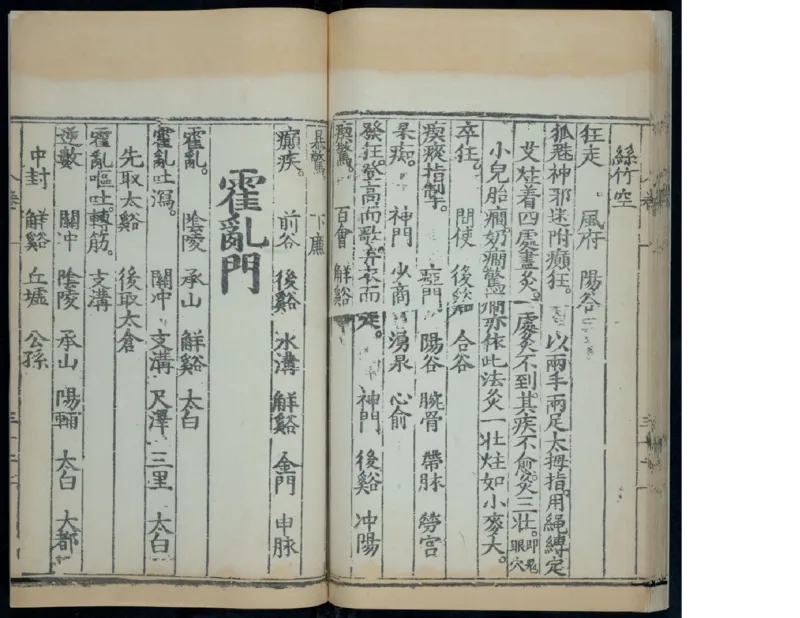 絲竹空
狂走 風府 陽谷
狐魅神邪迷附癲狂。以兩手兩足太拇指。用繩縛定
艾炷着四處盡灸。一處灸不到。其疾不愈。灸三壯。即鬼眼穴
小兒胎癇。奶癇驚癇亦依此法灸一壯炷如小麥大。
卒狂。 間使 後谿 合谷
瘈瘲指掣。 瘂門 陽谷 腕骨 帶脉 勞宮
呆痴。 神門 少商 湧泉 心俞
發狂。登高而歌。弃衣而走。 神門 後谿 冲陽
瘈驚。 百會 觧谿
暴驚。 下廉
癲疾。 前谷 後谿 水溝 觧谿 金門 申脉
霍亂門
霍亂。 陰陵 承山 觧谿 太白
霍亂吐瀉。 關冲 支溝 尺澤 三里 太白
先取太谿 後取太倉
霍亂嘔吐轉筋。 支溝
逆數 關冲 陰陵 承山 陽輔 太白 大都
中封 觧谿 丘墟 公孫